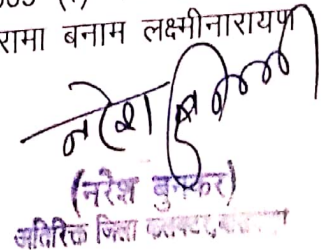 रामा बनाम लक्ष्मीनारायण
नरेश
(नरेश बुनकर)
अतिरिक्त जिला कलक्टर,